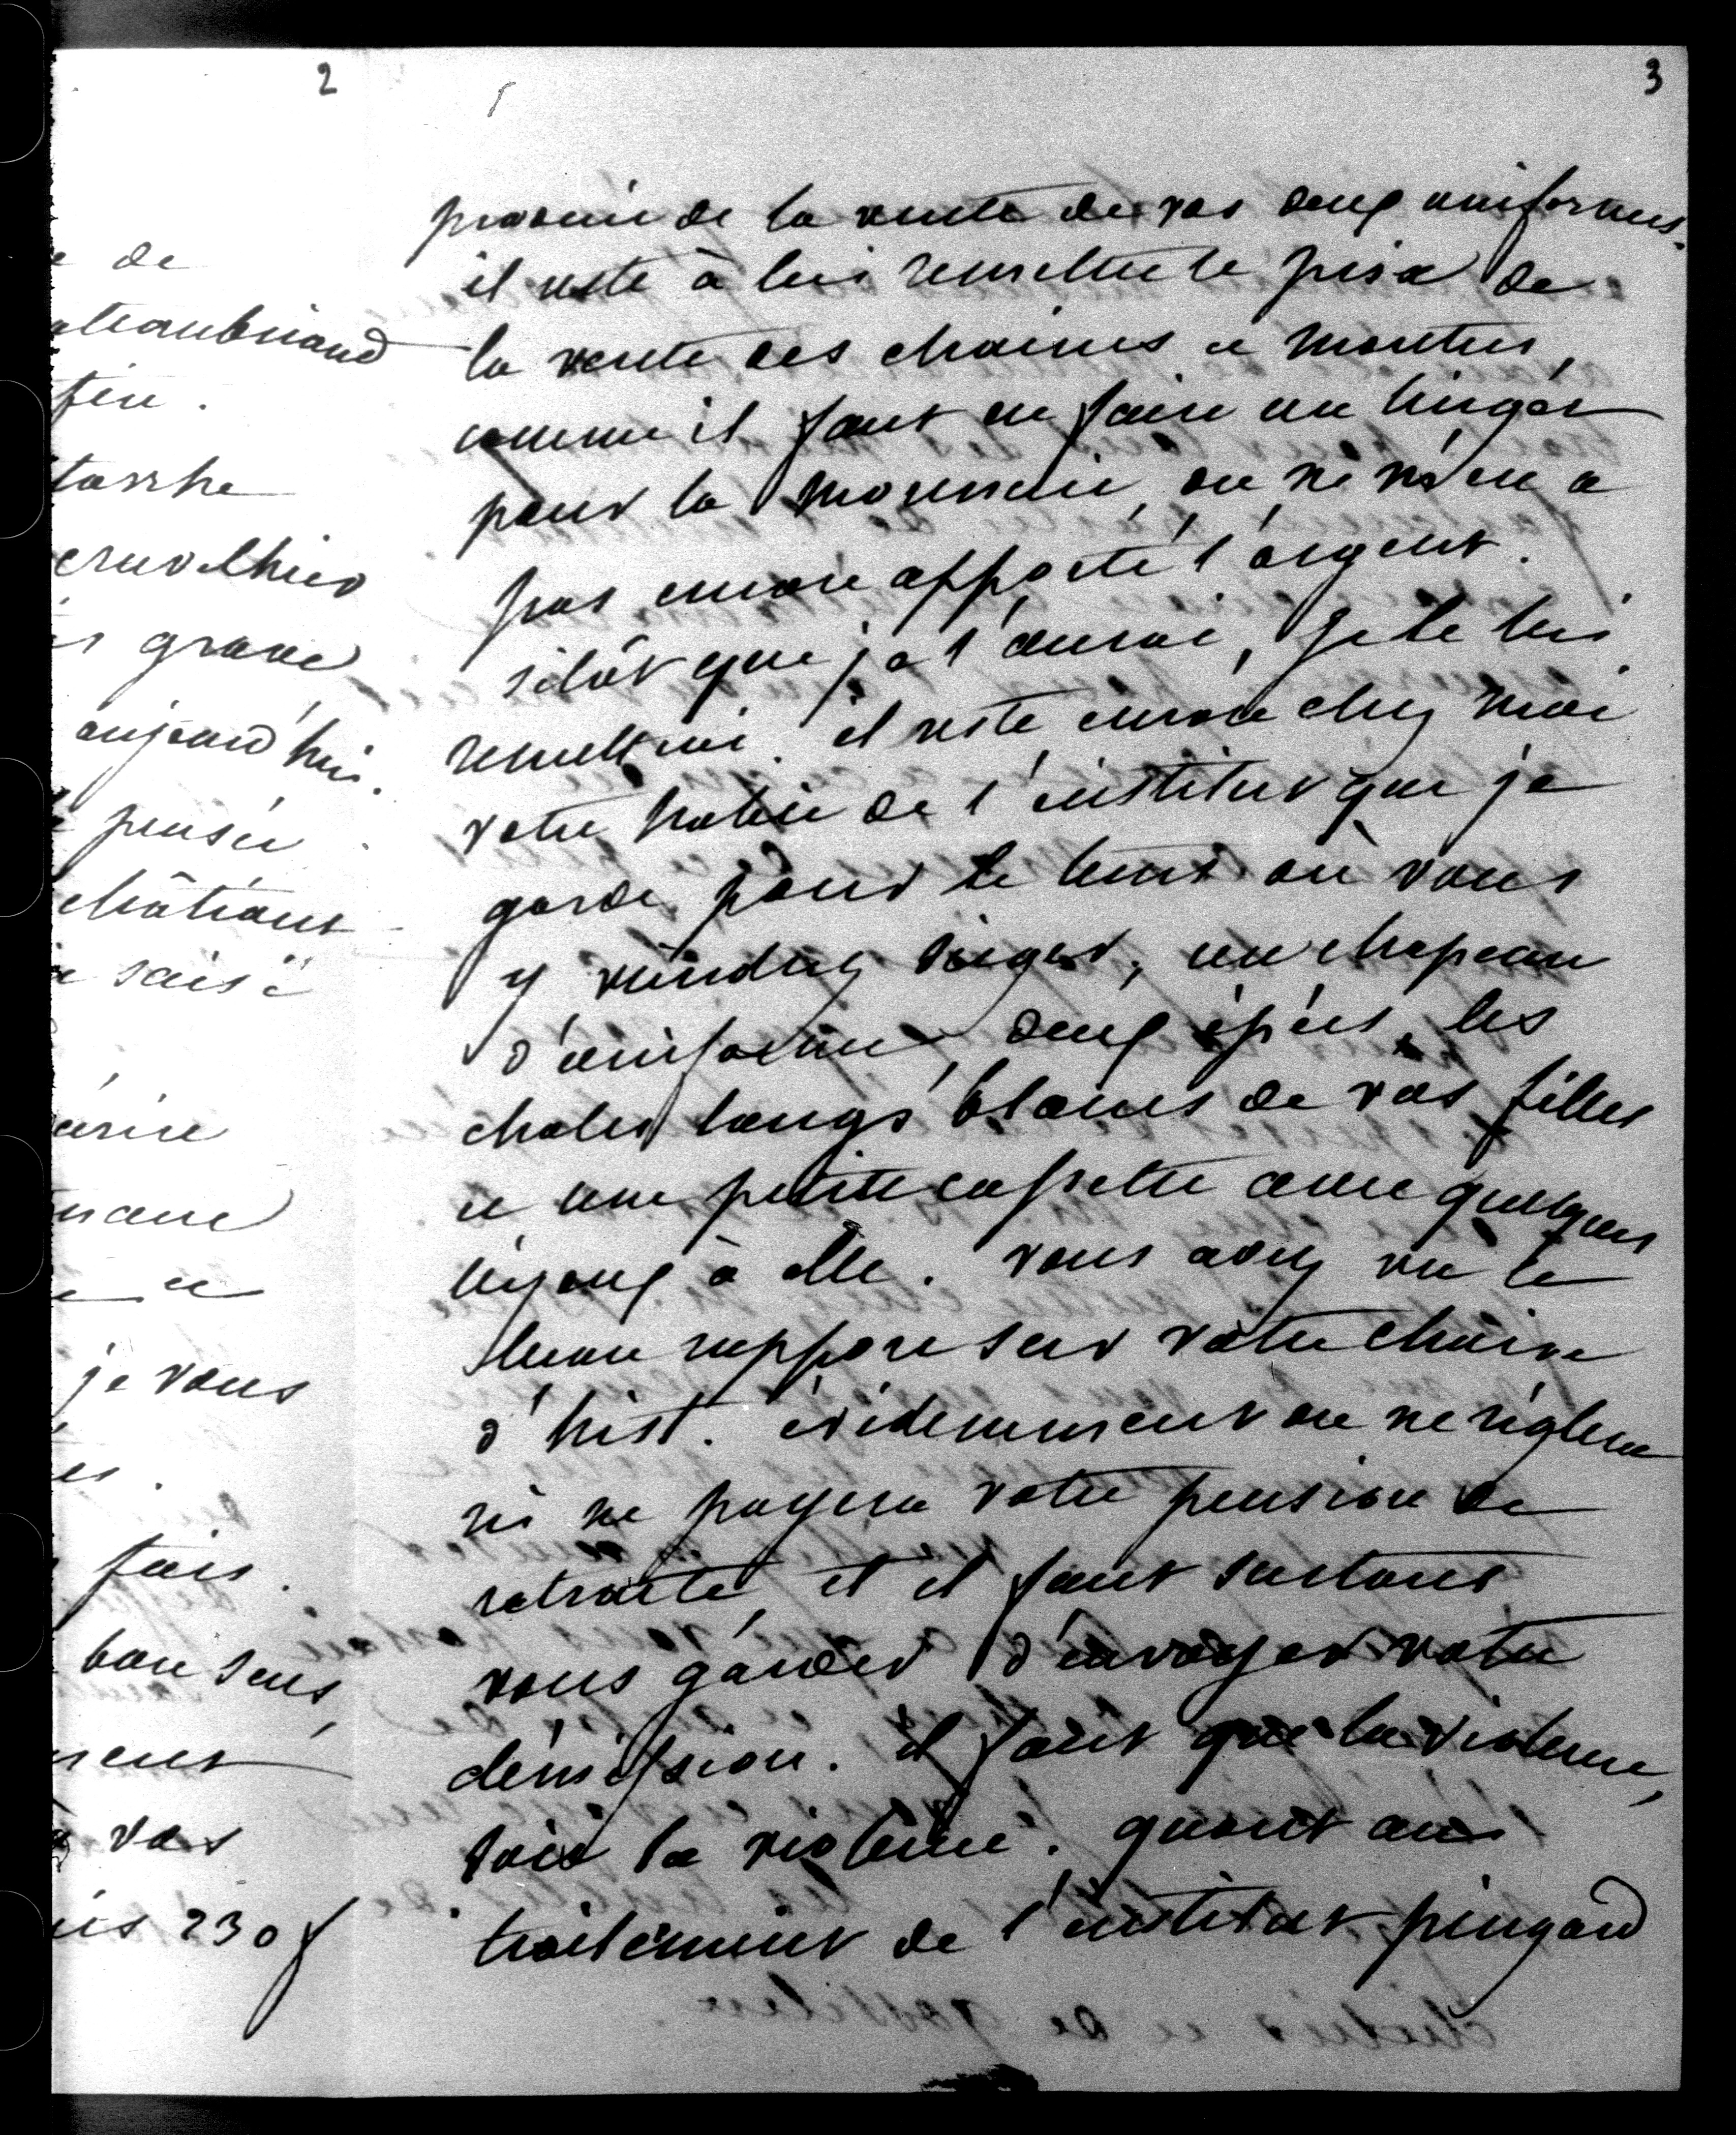 2
e de
ateaubriand
fin.
tarrhe
cruvelhier
s grave
aujourd'hui.
pensée
châtiant
saisi
écrire
mane
e et
je vous
es.
fais.
bon sens,
ment
vos
is 230 f
3
provenir de la vente de vos deux uniformes.
il reste à lui remettre le prix de
la vente des chaines et montres,
comme il faut en faire un lingot
pour la monnaie, on ne m'en a
pas encore apporté l'argent.
sitôt que je l'aurai, je le lui
remettrai. il reste encore chez moi
votre habit de l'institut que je
garde pour le tems où vous
y viendrez siéger, un chapeau
d'uniforme, deux épées, les
chales longs blancs de vos filles
et une petite cassette avec quelques
bijoux à elle. vous avez vu le
beau rapport sur votre chaire
d'hist. évidemment on ne règlera
ni ne payera votre pension de
retraite, et il faut surtout
vous garder d'envoyer votre
démission. il faut que la violence,
soit la violence. quant au
traitement de l'institut pingard